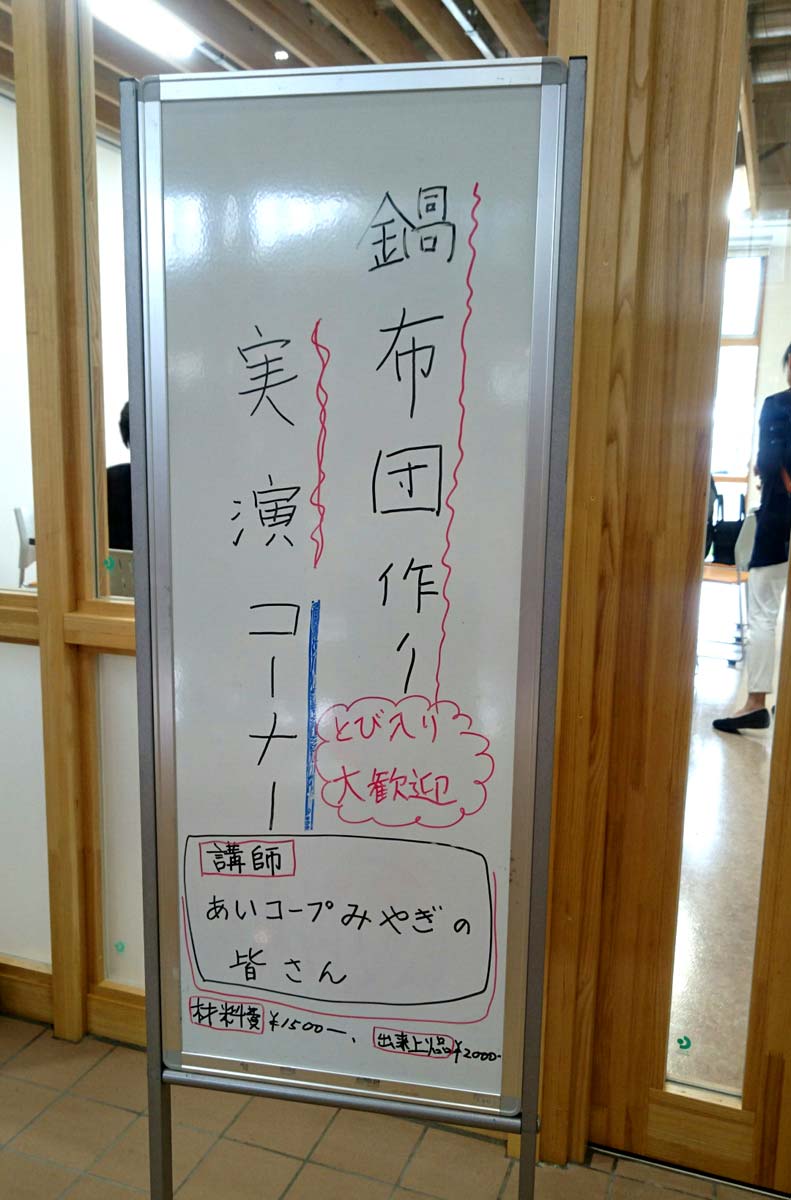 鍋布団作り
実演コーナー
とび入り
大歓迎
講師
あいコープみやぎの
皆さん
材料費 ¥1500ー、 出来上り品 ¥2000-